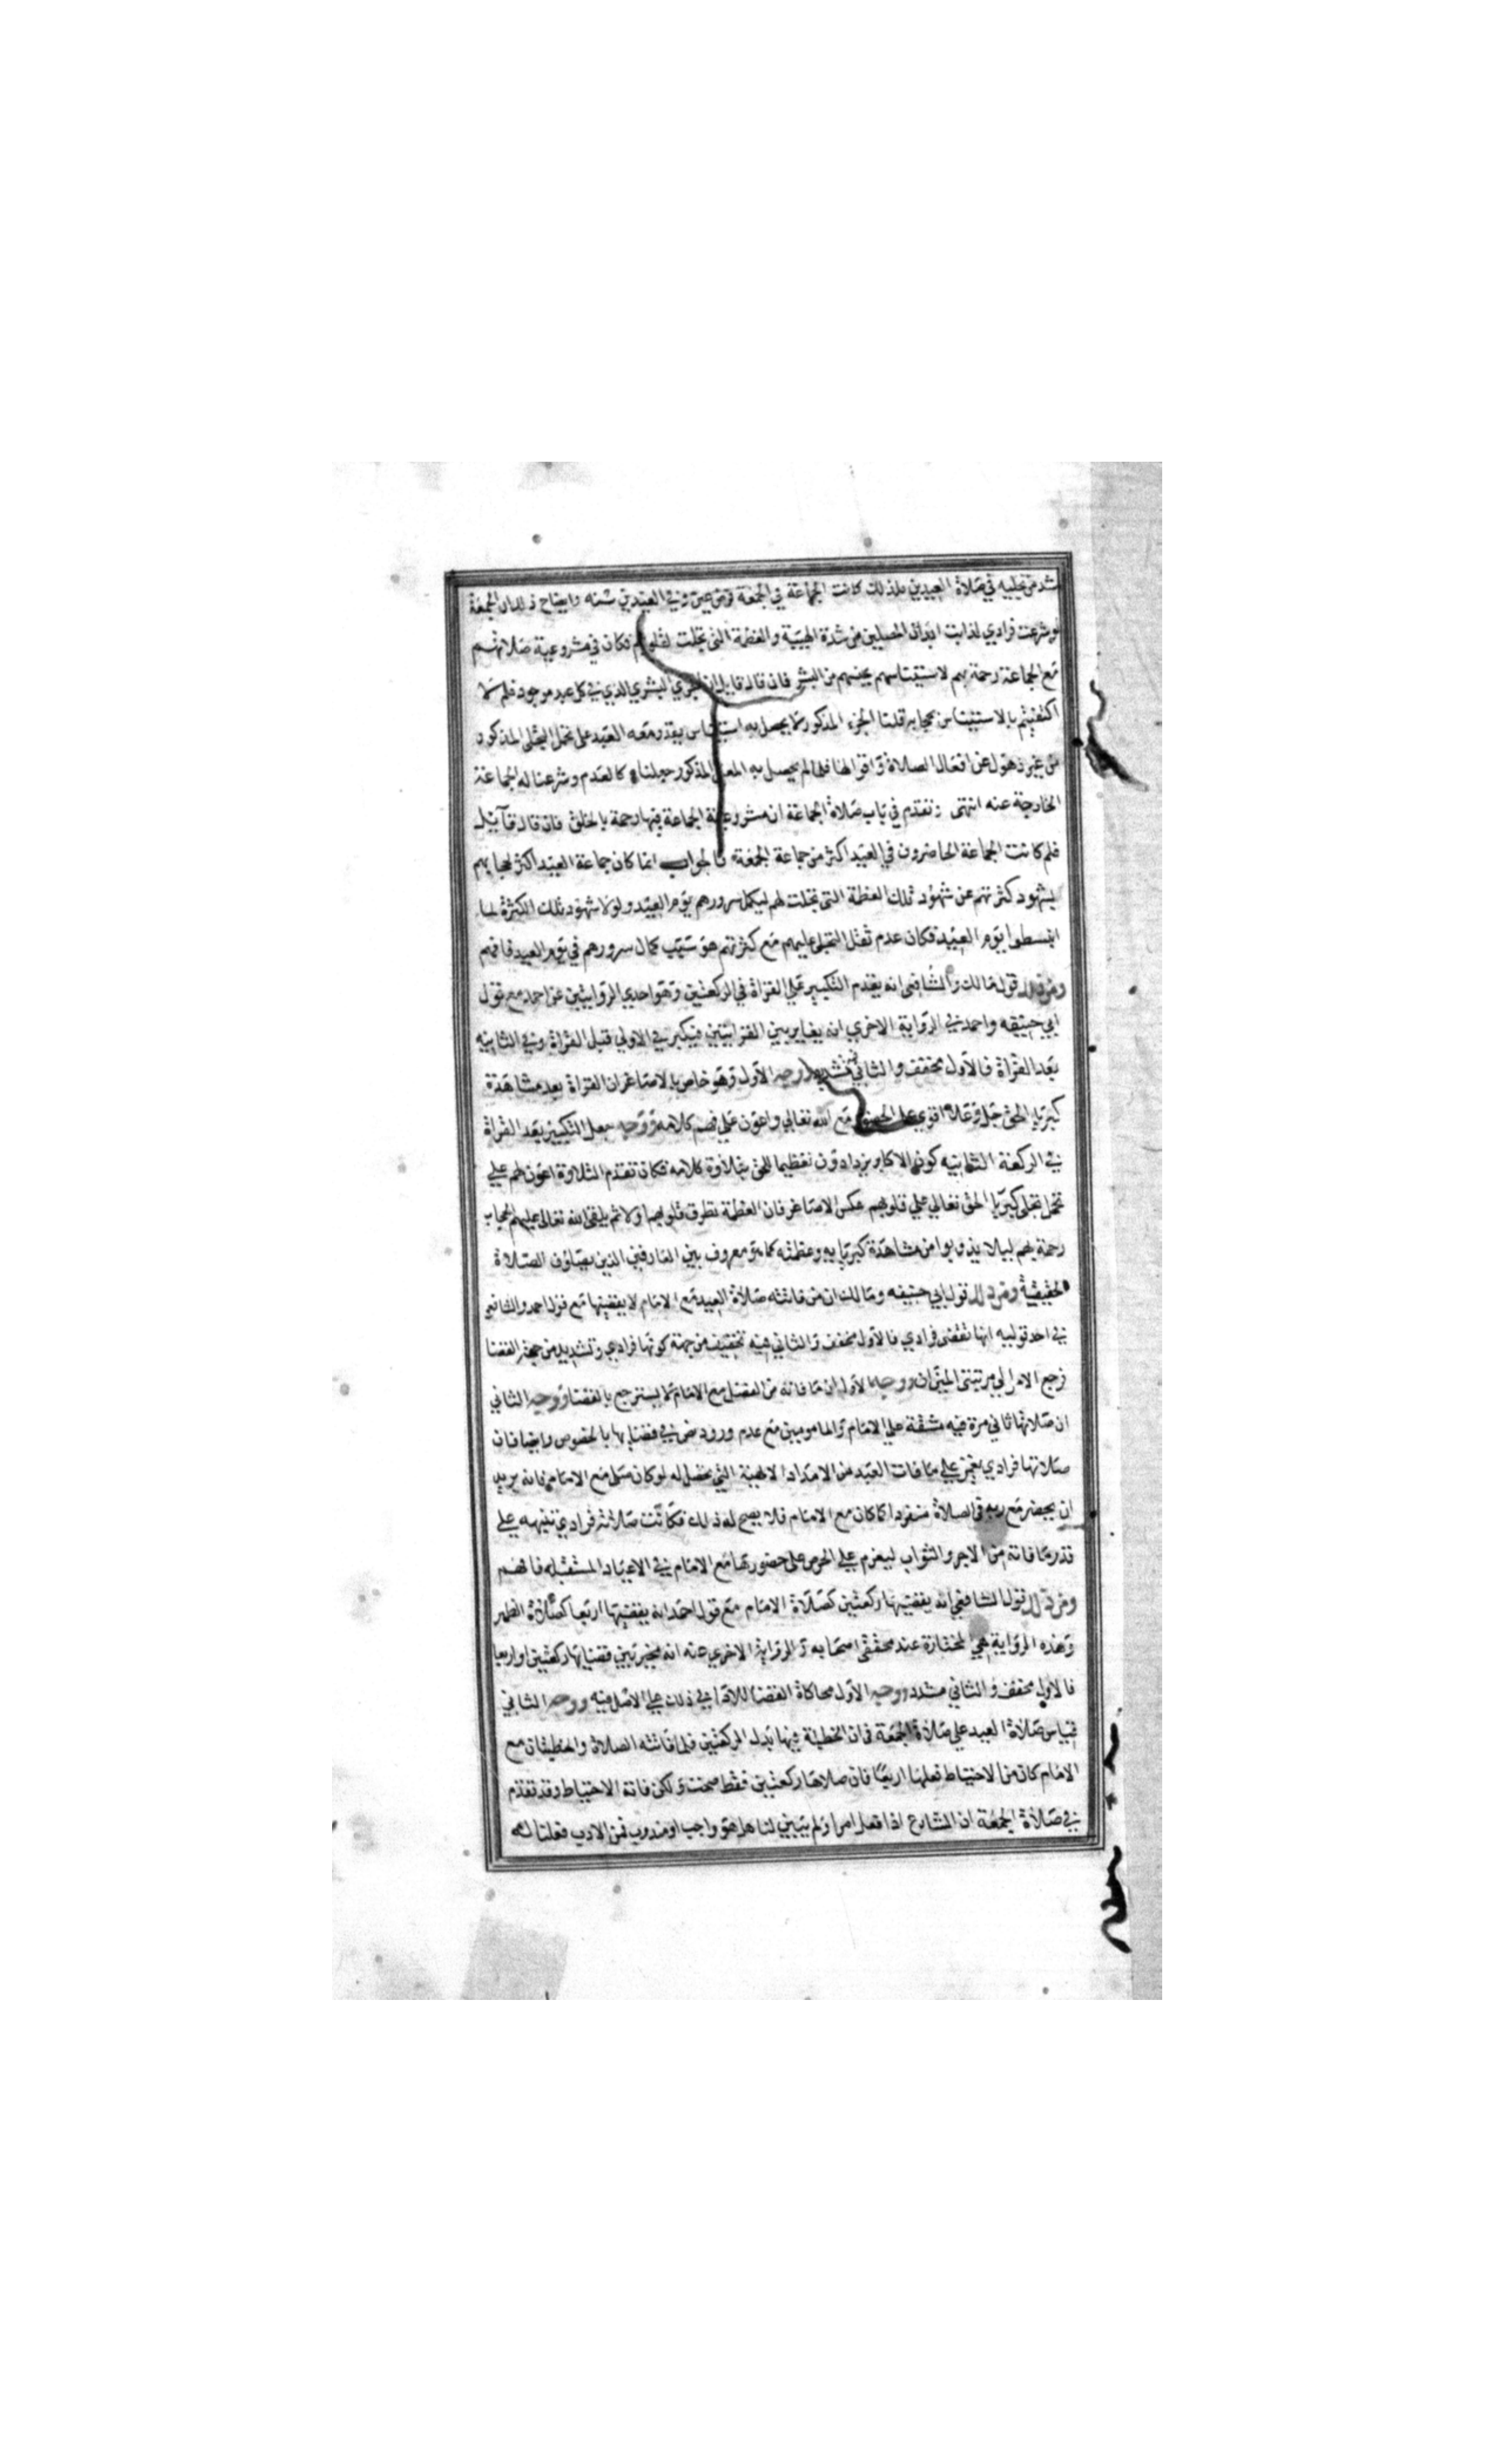 اشد من تجليه في صلاة العيدين فلذلك كانت الجماعة في الجمعة فرض عين وفي العيدين سنه وايضاح ذلك ان الجمعة
لو شرعت فرادي لذابت ابدان المصلين من شدة الهيبة والعظمة التي تجلت لقلوبهم فكان في مشروعية صلاتهم
مع الجماعة رحمة بهم لاستيناسهم بجنسهم من البشر فان قال قايل ان الجزء البشري الذي في كل عبد موجود فلم لا
اكتفيتم بالاستيناس بحجابه قلنا الجزء المذكور لا يحصل به استيناس يقدر معه العبد على تحمل التجلي المذكور
من غير ذهول عن افعال الصلاة واقوالها فلما لم يحصل به المعنى المذكور جعلناه كالعدم وشرعنا له الجماعة
الخارجة عنه انتهى وتقدم في باب صلاة الجماعة ان مشروعية الجماعة فيها رحمة بالخلق فان قال قآيل
فلم كانت الجماعة الحاضرون في العيد اكثر من جماعة الجمعة فالجواب انما كان جماعة العيد اكثر لحجابهم
بشهود كثرتهم عن شهود تلك العظمة التي تجلت لهم ليكمل سرورهم يوم العيد ولولا شهود تلك الكثرة لما
انبسطوا يوم العيد فكان عدم ثقل التجلي عليهم مع كثرتهم هو سبب كمال سرورهم في يوم العيد فافهم
ومن ذلك قول مالك والشافعي انه يقدم التكبير على القراة في الركعتين وهو احدي الروايتين عن احمد مع قول
ابي حنيفه واحمد في الرواية الاخري ان يغاير بين القرايتين فيكبر في الاولي قبل القراة وفي الثانيه
بعد القراة فالاول مخفف والثاني فيه تشديد ووجه الاول وهو خاص بالاصاغر ان القراة بعد مشاهدة
كبريا الحق جل وعلا اقوي على الحضور مع الله تعالي واعون علي فهم كلامه ووجه جعل التكبير بعد القراة
في الركعة الثانيه كون الاكابر يزدادون تعظيما للحق بتلاوة كلامه فكان تقدم التلاوة اعون لهم علي
تحمل تجلي كبريا الحق تعالي علي قلوبهم عكس الاصاغر فان العظمة تطرق قلوبهم اولا ثم يلقي الله تعالى عليهم الحجاب
رحمة بهم ليلا يذوبوا من مشاهدة كبريايه وعظمته كما هو معروف بين العارفين الذين يصلون الصلاة
الحقيقية ومن ذلك قول ابي حنيفه ومالك ان من فاتته صلاة العيد مع الامام لا يقضيها مع قول احمد والشافعي
في احد قوليه انها تقضى فرادي فالاول مخفف والثاني فيه تخفيف من جهة كونها فرادي وتشديد من جهة القضا
فرجع الامر الي مرتبتي الميزان ووجه الاول ان ما فاته من الفضل مع الامام لا يسترجع بالقضا ووجه الثاني
ان صلاتها ثاني مرة فيه مشقة علي الامام والمامومين مع عدم ورود نص في قضايها بالخصوص وايضا فان
صلاتها فرادي علي ما فات العبد من الامداد الالهية التي تحصل له لو كان صلى مع الامام فانه يريد
ان يحضر مع ربه في الصلاة منفردا كما كان مع الامام فلا يصح له ذلك فكانت صلاته فرادي تنبيهه علي
قدر ما فاته من الاجر والثواب ليعزم علي الحرص على حضورها مع الامام في الاعياد المستقبله فافهم
ومن ذلك قول الشافعي انه يقضيها ركعتين كصلاة الامام مع قول احمد انه يقضيها اربعا كصلاة الظهر
وهذه الرواية هي المختارة عند محققى اصحابه والرواية الاخري عنه انه مخير بين قضايها ركعتين او اربعا
فالاول مخفف والثاني مشدد ووجه الاول محاكاة القضا للادا في ذلك علي الاصل فيه ووجه الثاني
قياس صلاة العيد علي صلاة الجمعة فان الخطبة فيها بدل الركعتين فلما فاتته الصلاة والخطبتان مع
الامام كان من الاحتياط فعلها اربعا فان صلاها ركعتين فقط صحت ولكن فاته الاحتياط وقد تقدم
في صلاة الجمعة ان الشارع اذا فعل امرا ولم يتبين لنا هل هو واجب او مندوب فمن الادب فعلنا له